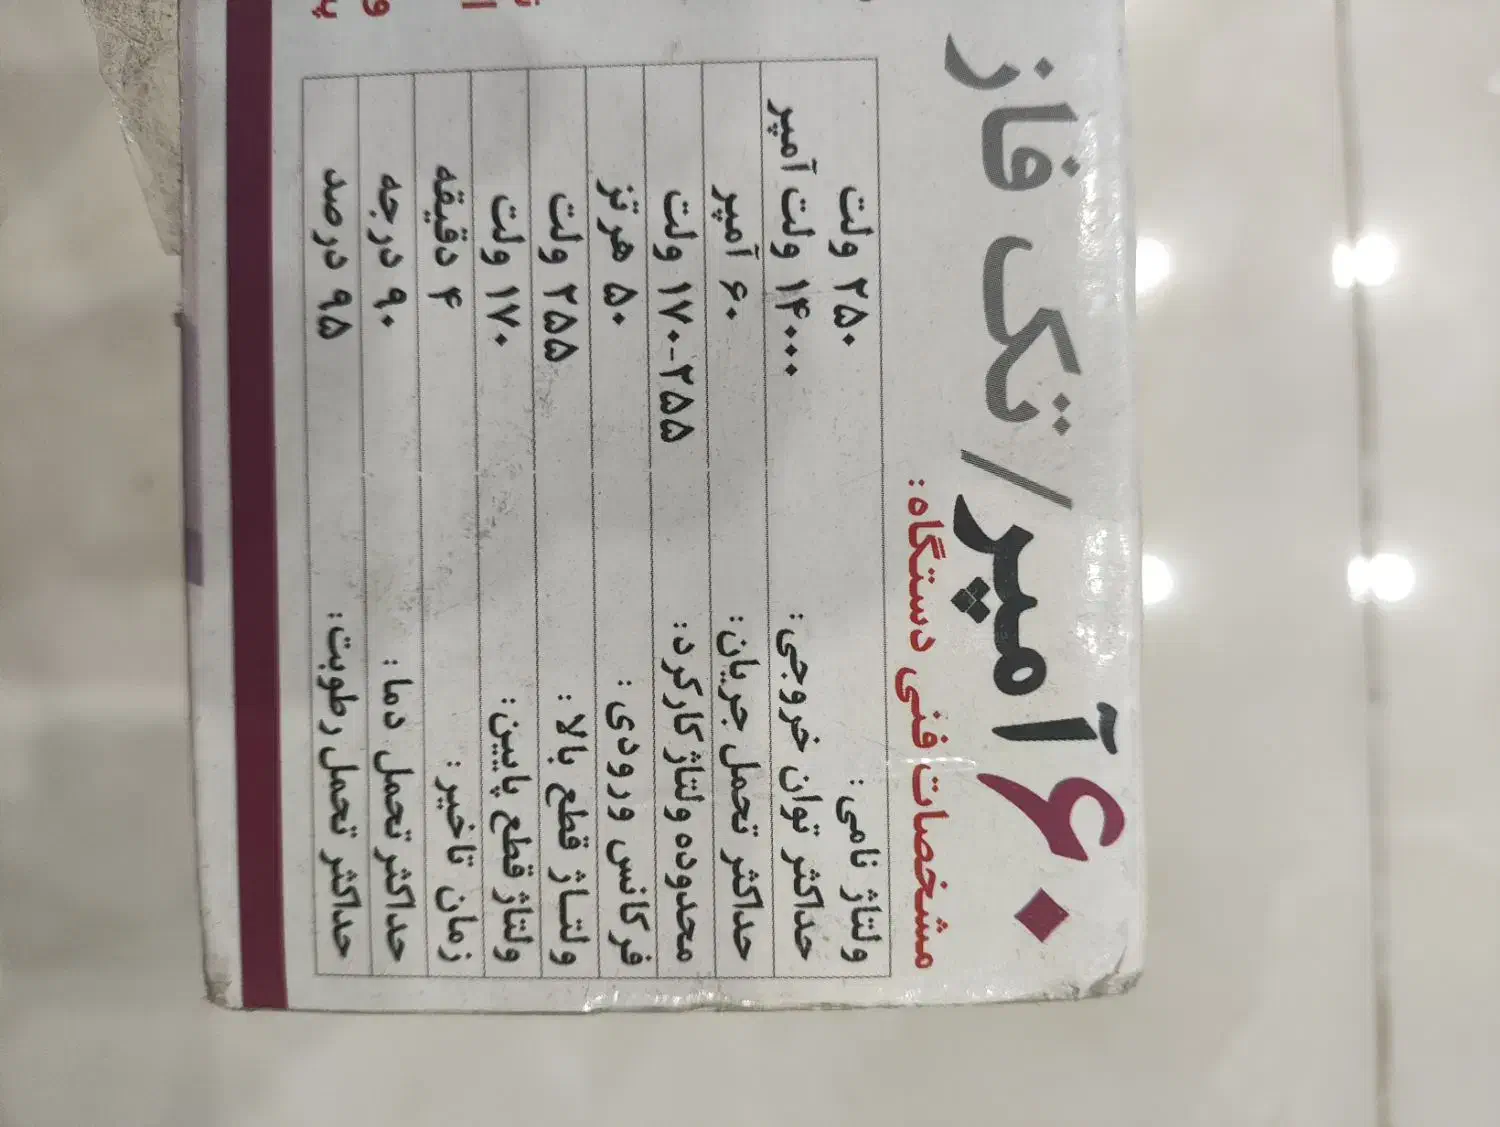 ۶۰ آمپر/تک فاز
مشخصات فنی دستگاه:
ولتاژ نامی: ۲۵۰ ولت
حداکثر توان خروجی: ۱۴۰۰۰ ولت آمپر
حداکثر تحمل جریان: ۶۰ آمپر
محدوده ولتاژ کارکرد: ۱۷۰-۲۵۵ ولت
فرکانس ورودی: ۵۰ هرتز
ولتاژ قطع بالا: ۲۵۵ ولت
ولتاژ قطع پایین: ۱۷۰ ولت
زمان تاخیر: ۴ دقیقه
حداکثر تحمل دما: ۹۰ درجه
حداکثر تحمل رطوبت: ۹۵ درصد